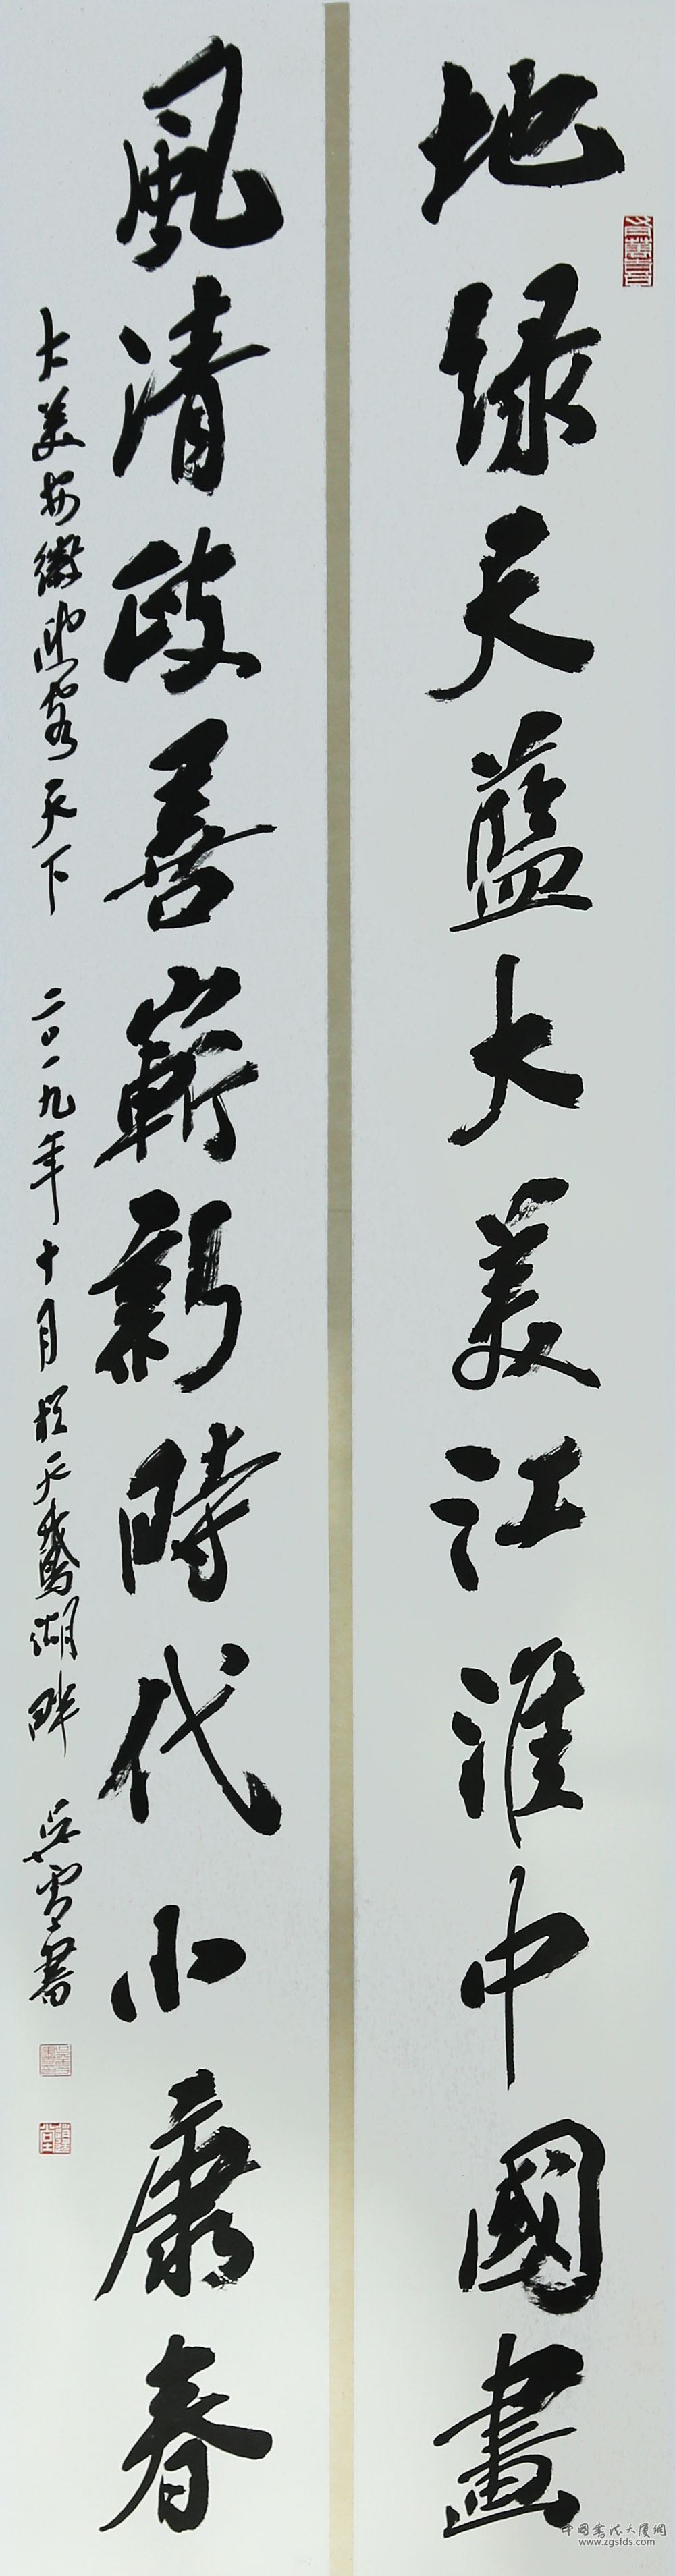 地绿天蓝大美江淮中國畫
風清政善嶄新時代小康春
大美安徽迎客天下 二〇一九年十月於天鵝湖畔 吳雪書
中國書法大厦網
www.zgsfds.com